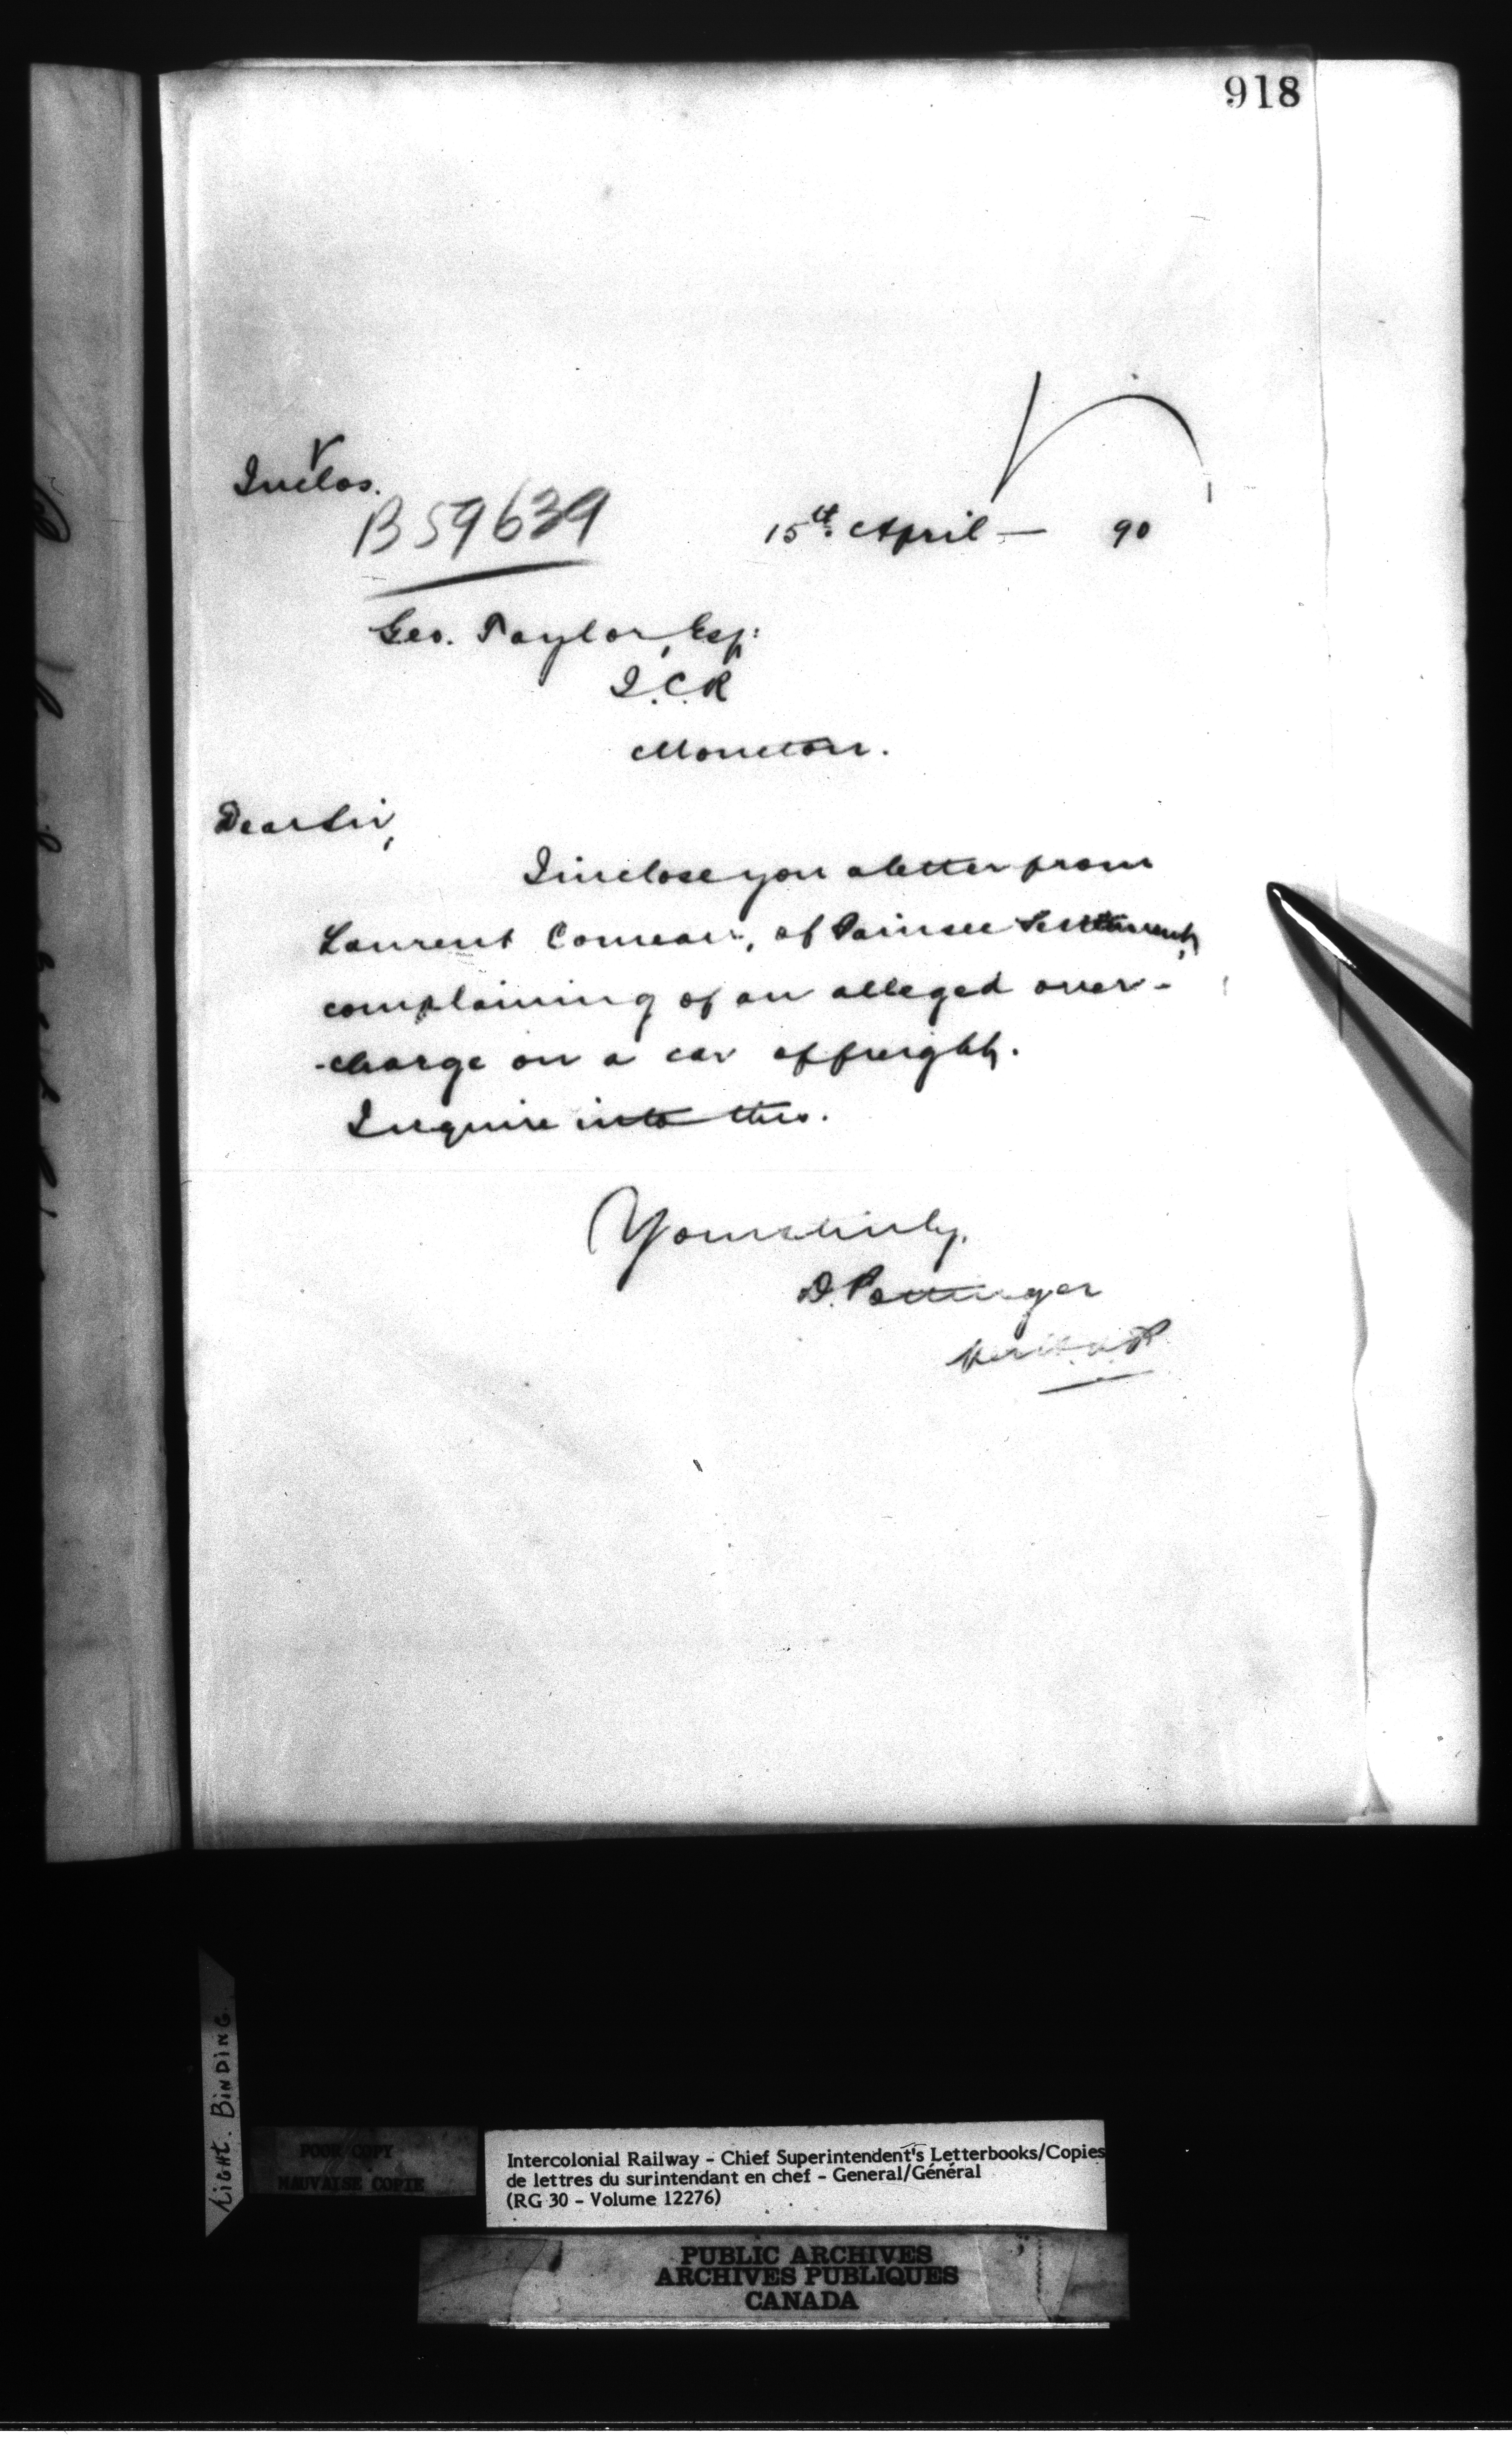 918
Inclos.
B59639
15th April — 90
Geo. Taylor, Esq:
I.C.R
Moncton.
Dear Sir,
I inclose you a letter from
Laurent Comeau, of Painsec Settlement,
complaining of an alleged over-
-charge on a car of freight.
Inquire into this.
Yours truly,
D. Pottinger
per
TIGHT. BINDING
POOR COPY
MAUVAISE COPIE
Intercolonial Railway - Chief Superintendent's Letterbooks/Copies
de lettres du surintendant en chef - General/Général
(RG 30 - Volume 12276)
PUBLIC ARCHIVES
ARCHIVES PUBLIQUES
CANADA